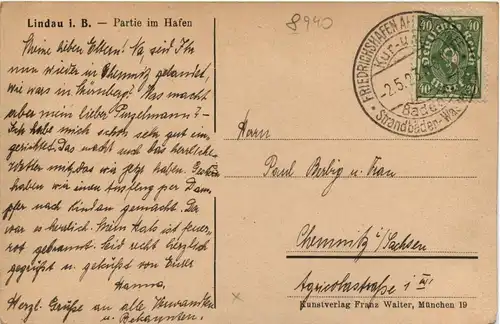 Lindau i. B. — Partie im Hafen
8940
Meine lieben Eltern! Na, seid Ihr
nun wieder in Chemnitz gelandet,
wie war's in Nürnberg? Was macht
aber mein lieber Purzelmann? -
Ich habe mich schon sehr gut ein-
gerichtet. Das macht auch das herrliche
Wetter mit, das wir jetzt haben. Gestern
haben wir einen Ausflug per Dam-
pfer nach Lindau gemacht. Der
war so herrlich. Mein Hals ist feuer-
rot gebrannt. Seid recht herzlich
gegrüßt und geküsst von Eurer
Hanna.
Herzl. Grüße an alle Verwandten
u. Bekannten.
FRIEDRICHSHAFEN A
Kur- u.
-2.5.2
Bade
Strandbäder-Wa
40 40
Deutsches Reich
40 40
Herrn
Paul Berbig u. Frau
Chemnitz i/Sachsen
Agricolastraße
Kunstverlag Franz Walter, München 19